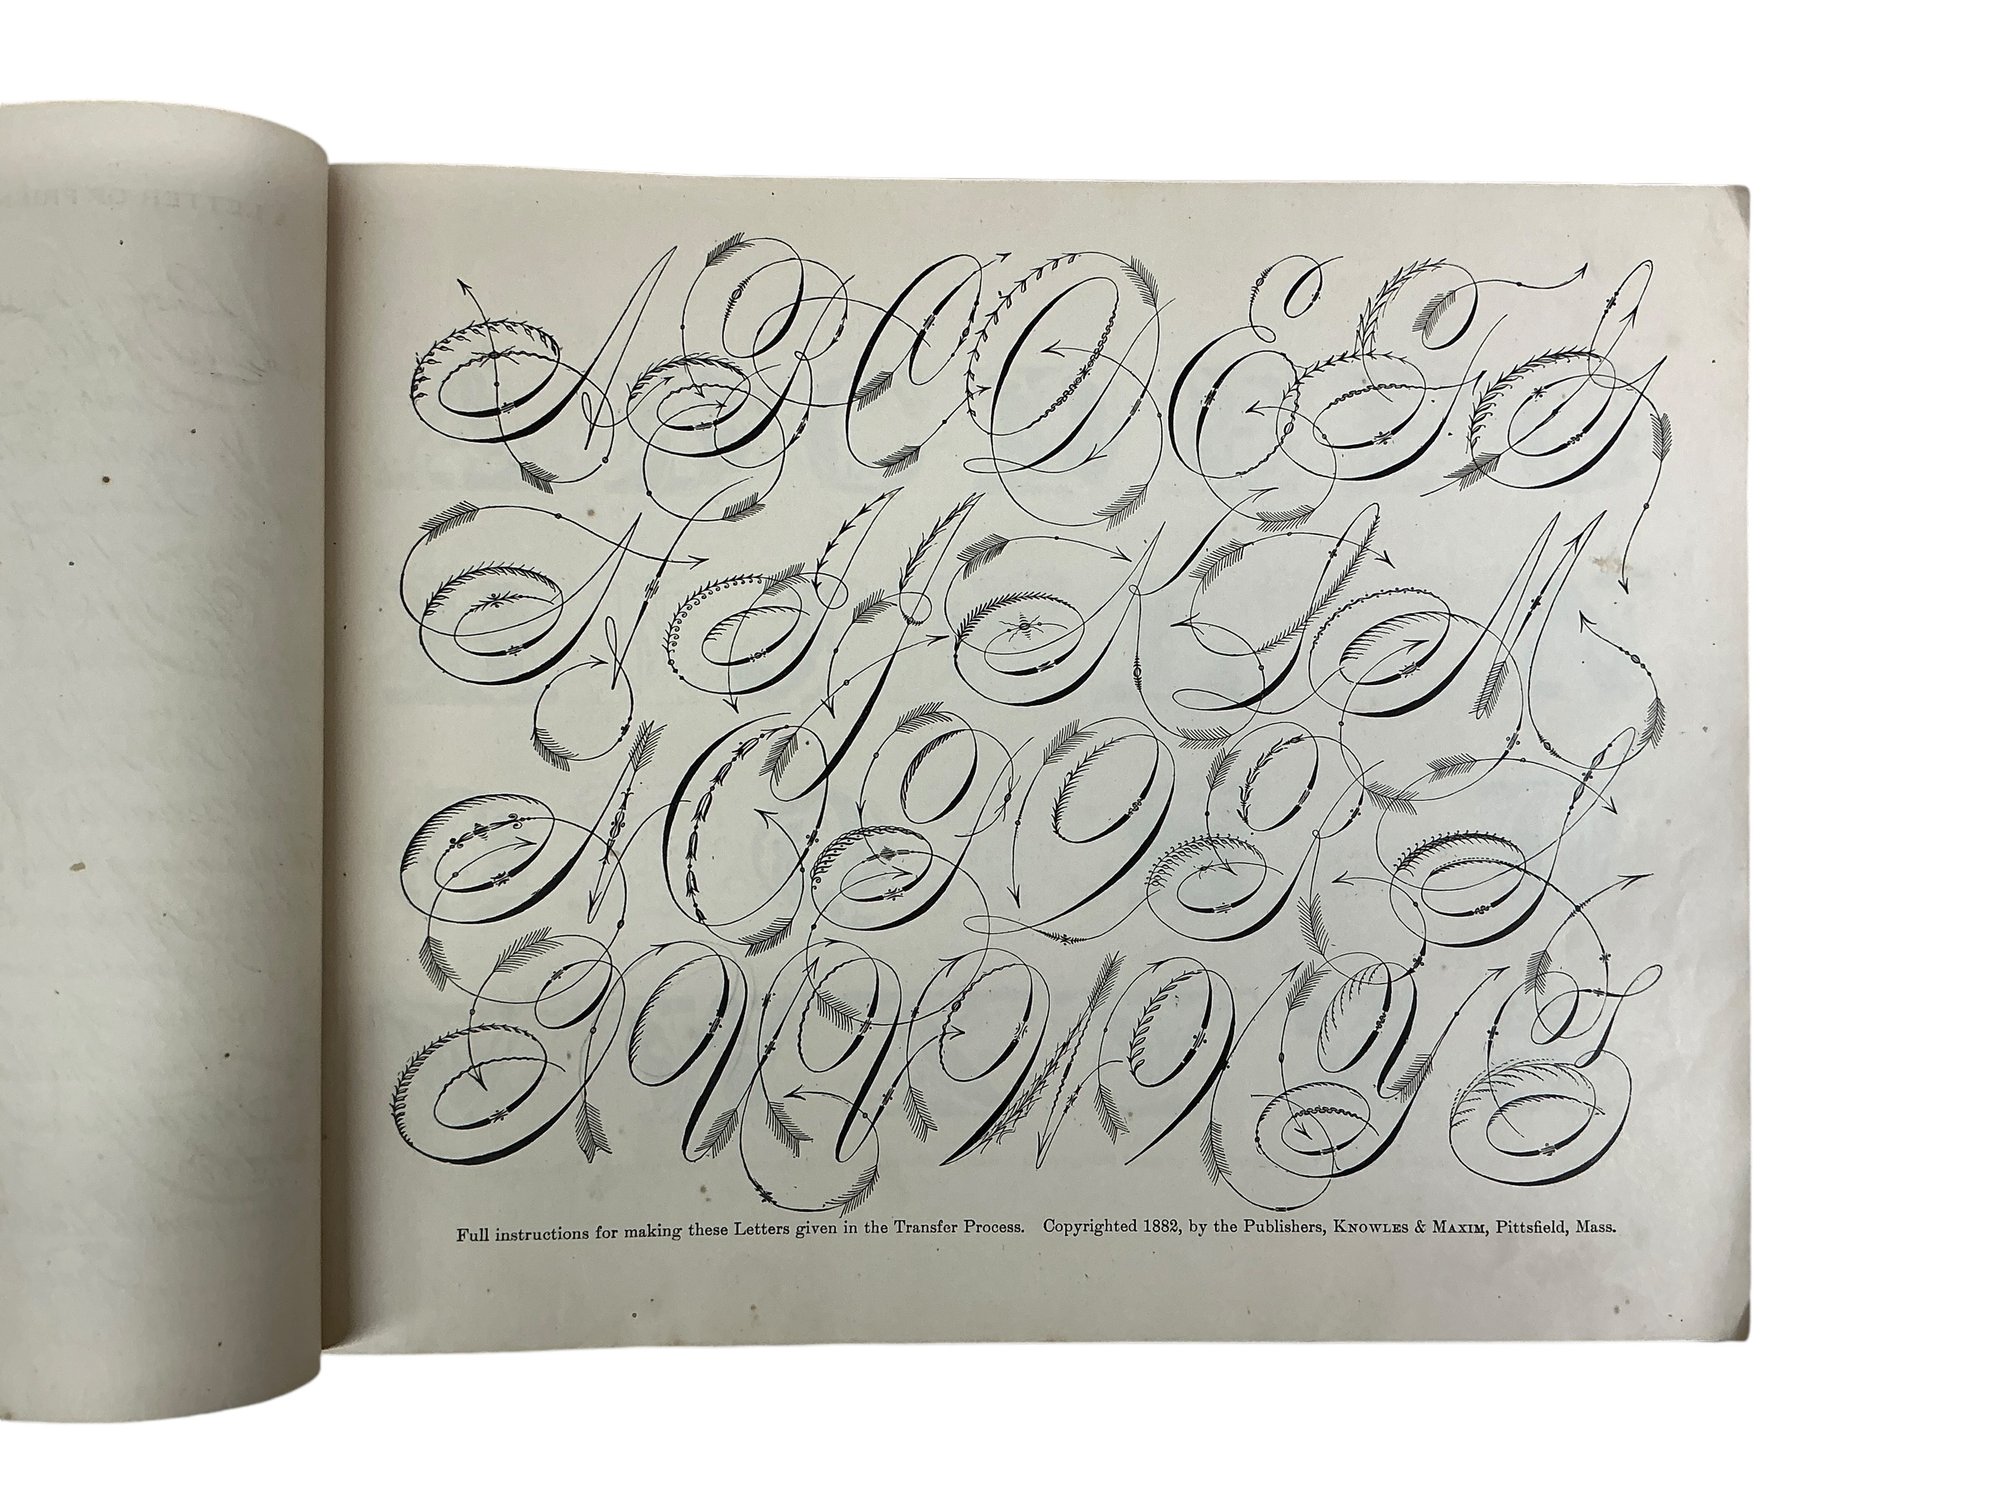 A B C D E F G
H I J K L M
N O P Q R S
T U V W X Y Z
Full instructions for making these Letters given in the Transfer Process. Copyrighted 1882, by the Publishers, KNOWLES & MAXIM, Pittsfield, Mass.